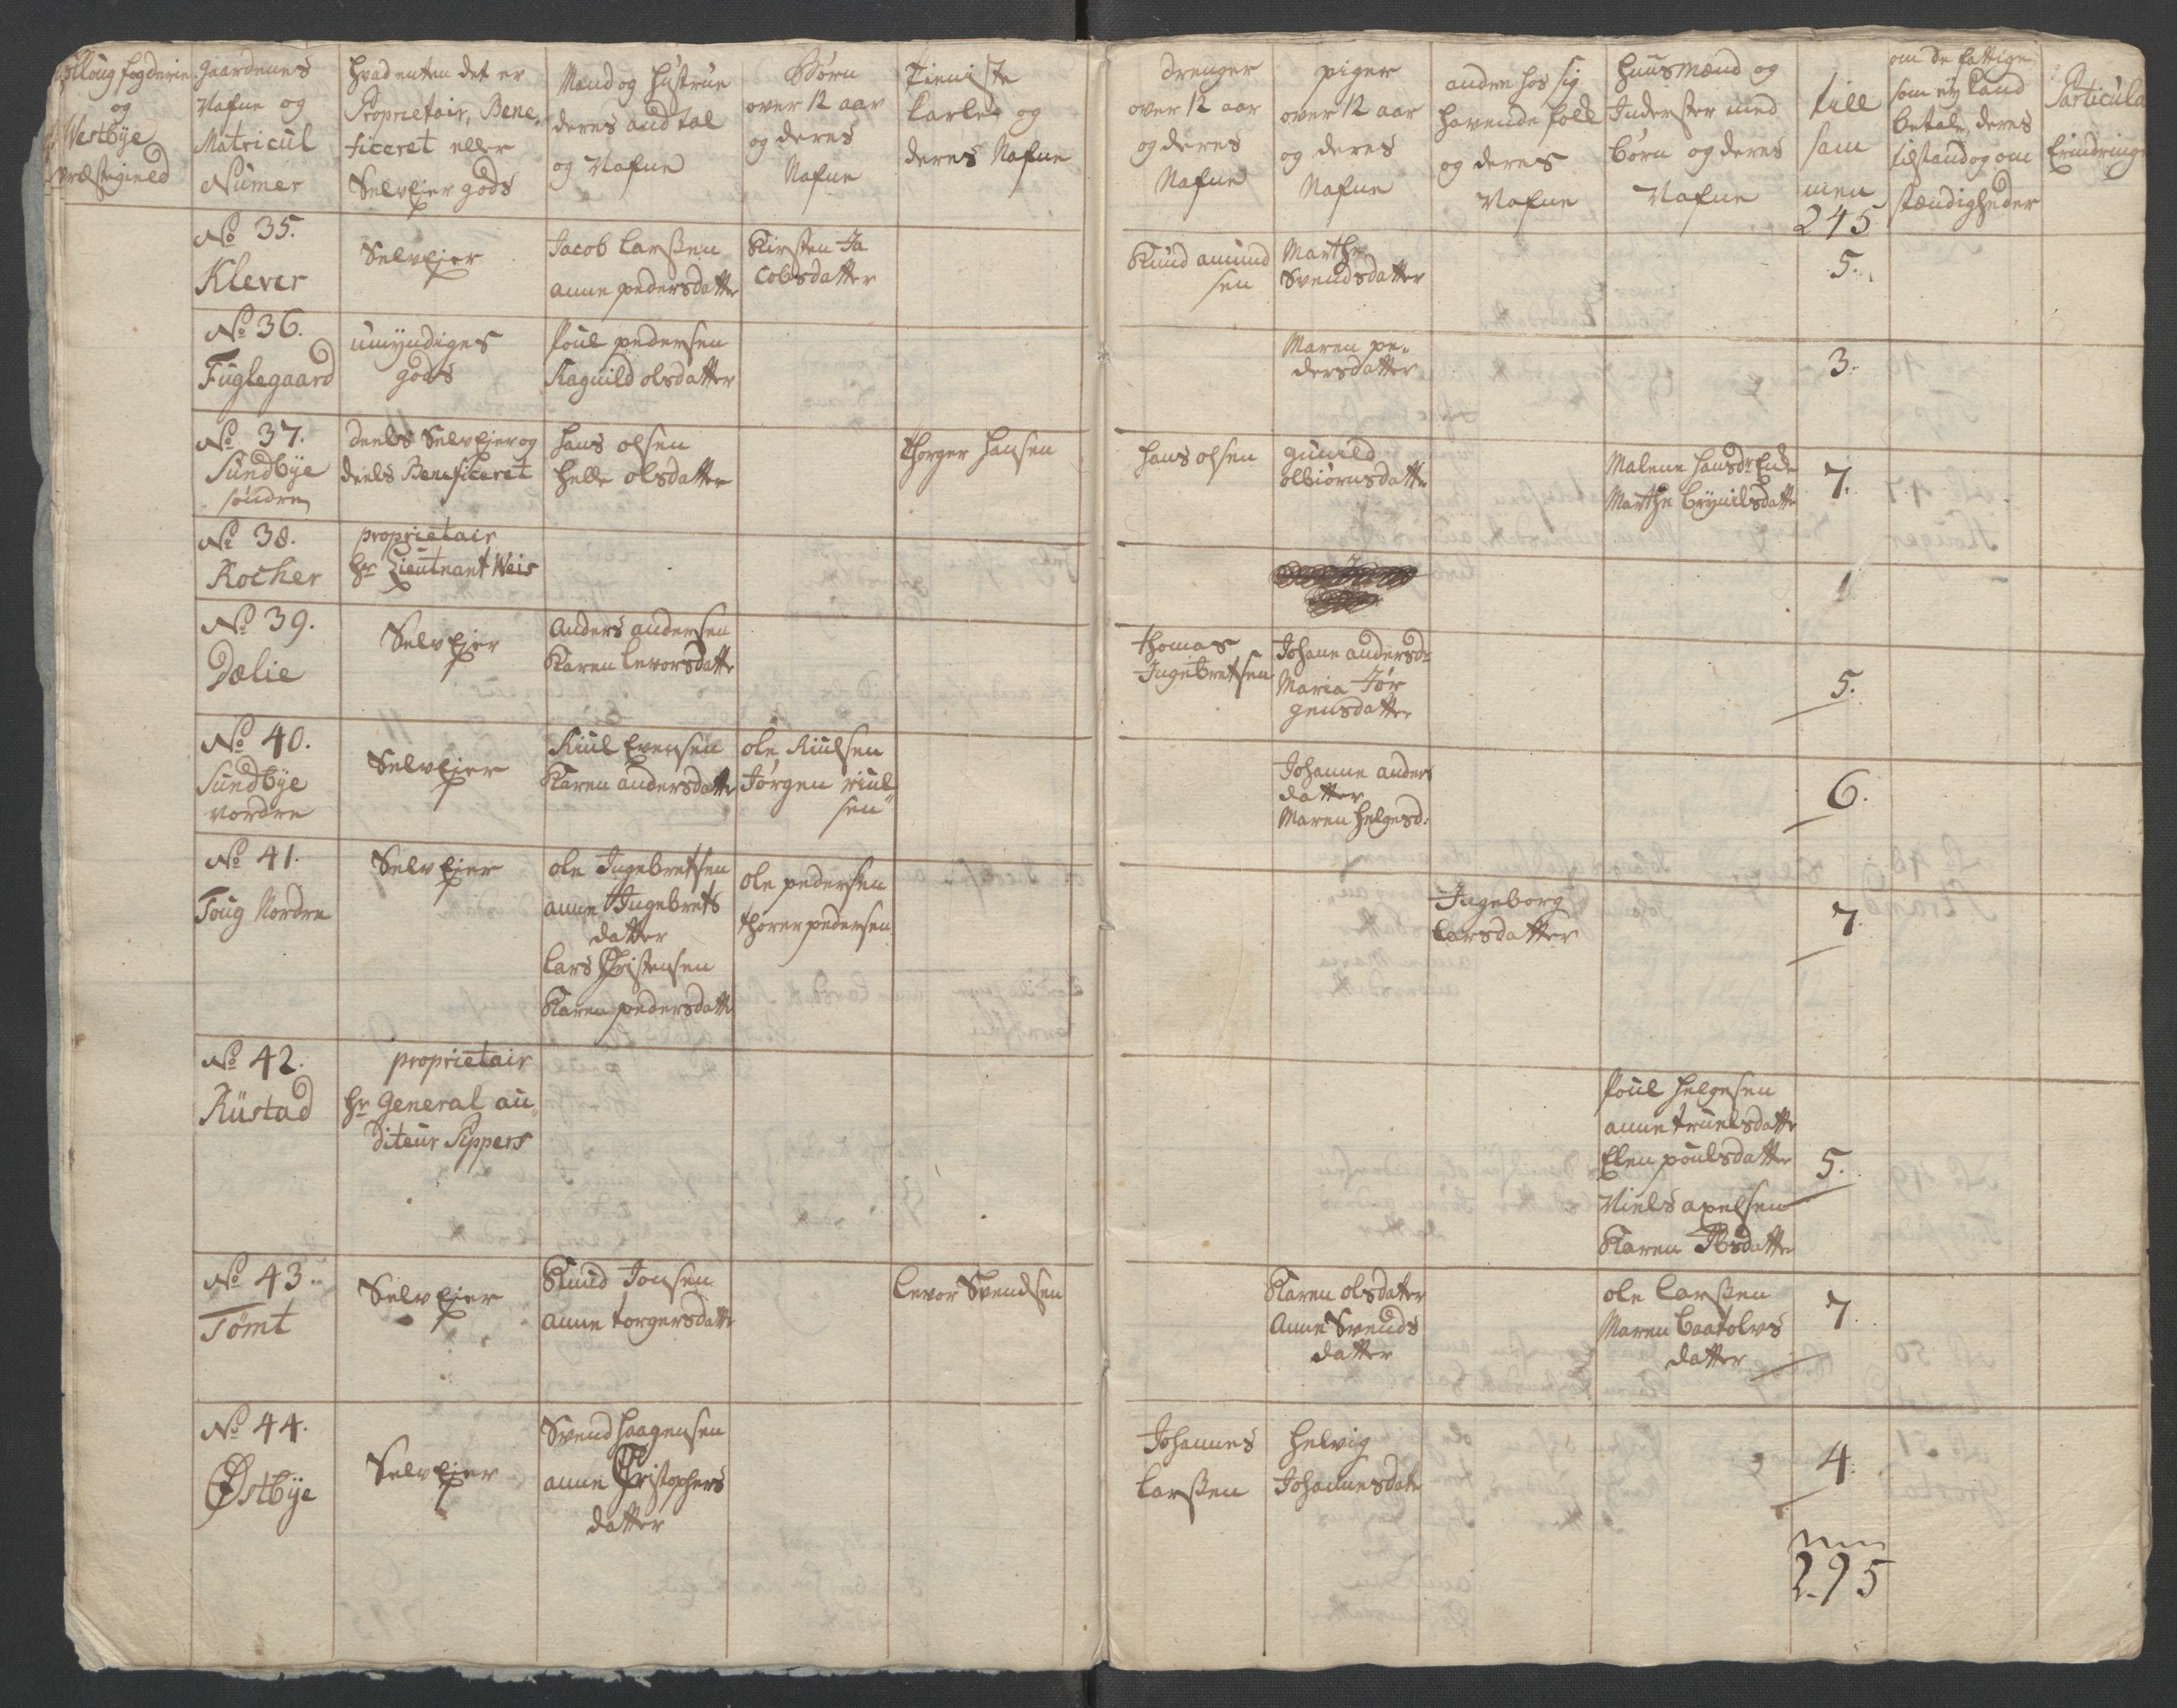 fogderie
og
Westbÿe
Præstegield
Gaardenes
Nafne og
Matricul
Numer
hvad enten det er
Proprietair, Bene,
ficeret eller
Selvejer gods
Mand og Hustrue
deres andtal
og Nafne
Børn
over 12 aar
og deres
Nafne
Tieniste
karle og
deres Nafne
drenger
over 12 aar
og deres
Nafne
piger
over 12 aar
og deres
Nafne
andre hos sig
havende folk
og deres
Nafne
Huusmænd og
Inderster med
børn og deres
Nafne
till
sam
men
245
om de fattige
som eÿ kand
betale, deres
tilstand og om
stændigheder
Particula
Erindringe
No 35.
Klever
Selvejer
Jacob Larssen
anne pedersdatter
Kirsten Ja
cobsdatter
Knud amund
sen
Marthe
Svendsdatter
5.
No 36.
Fuglegaard
umÿndiges
gods
Poul pedersen
Ragnild olsdatter
Maren pe,
dersdatter
3.
No 37.
Sundbÿe
søndre
deels Selvejer og
deels Beneficeret
Hans olsen
Helle olsdatter
Thorger Hansen
Hans olsen
gunild
olbiørnsdatter
Malene Hansdr Enke
Marthe Brÿnilsdatter
7.
No 38.
Kocher
proprietair
Hr Lieutnant Weis
No 39.
Dælie
Selvejer
Anders andersen
Karen Levorsdatter
Thomas
Ingebretsen
Johane andersdr
Maria Jør
gensdatter
5.
No 40.
Sundbÿe
nordre
Selvejer
Riul Evensen
Karen andersdatter
ole Riulsen
Jørgen riul
sen
Johanne anders
datter
Maren Helgesd:
6.
No 41.
Toug Nordre
Selvejer
ole Ingebretsen
anne Ingebrets
datter
Lars Christensen
Karen pedersdatter
ole pedersen
thorer pedersen
Ingeborg
Larsdatter
7.
No 42.
Rustad
proprietair
Hr General au,
diteur Sippers
Poul Helgesen
anne truelsdatter
Elen poulsdatter
Niels apelsen
Karen Ibsdatter
5.
No 43.
Tømt
Selvejer
Knud Jonsen
anne torgersdatter
Levor Svendsen
Karen olsdatter
Anne Svends
datter
ole Larssen
Maren Baatolvs
datter
7.
No 44.
Østbÿe
Selvejer
Svend Haagensen
anne Christophers
datter
Johannes
Larssen
Helvig
Johannesdatr
4.
295